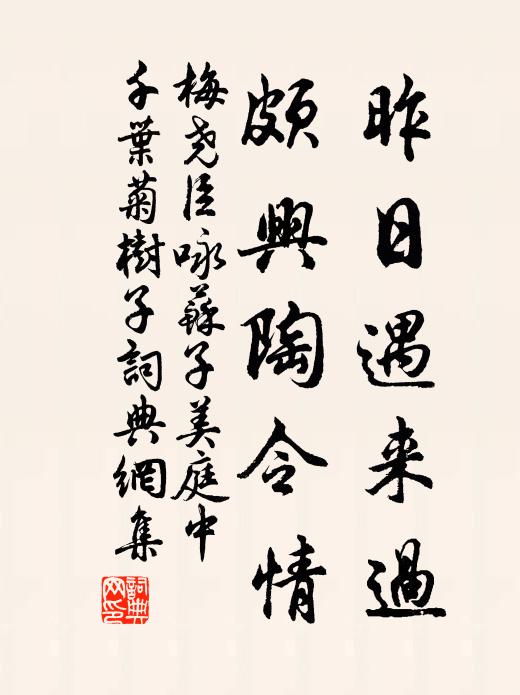 昨日遇来過
頗興陶令情
梅尧臣咏蘇子美庭中
千葉菊樹子詞典網集
詞典網印